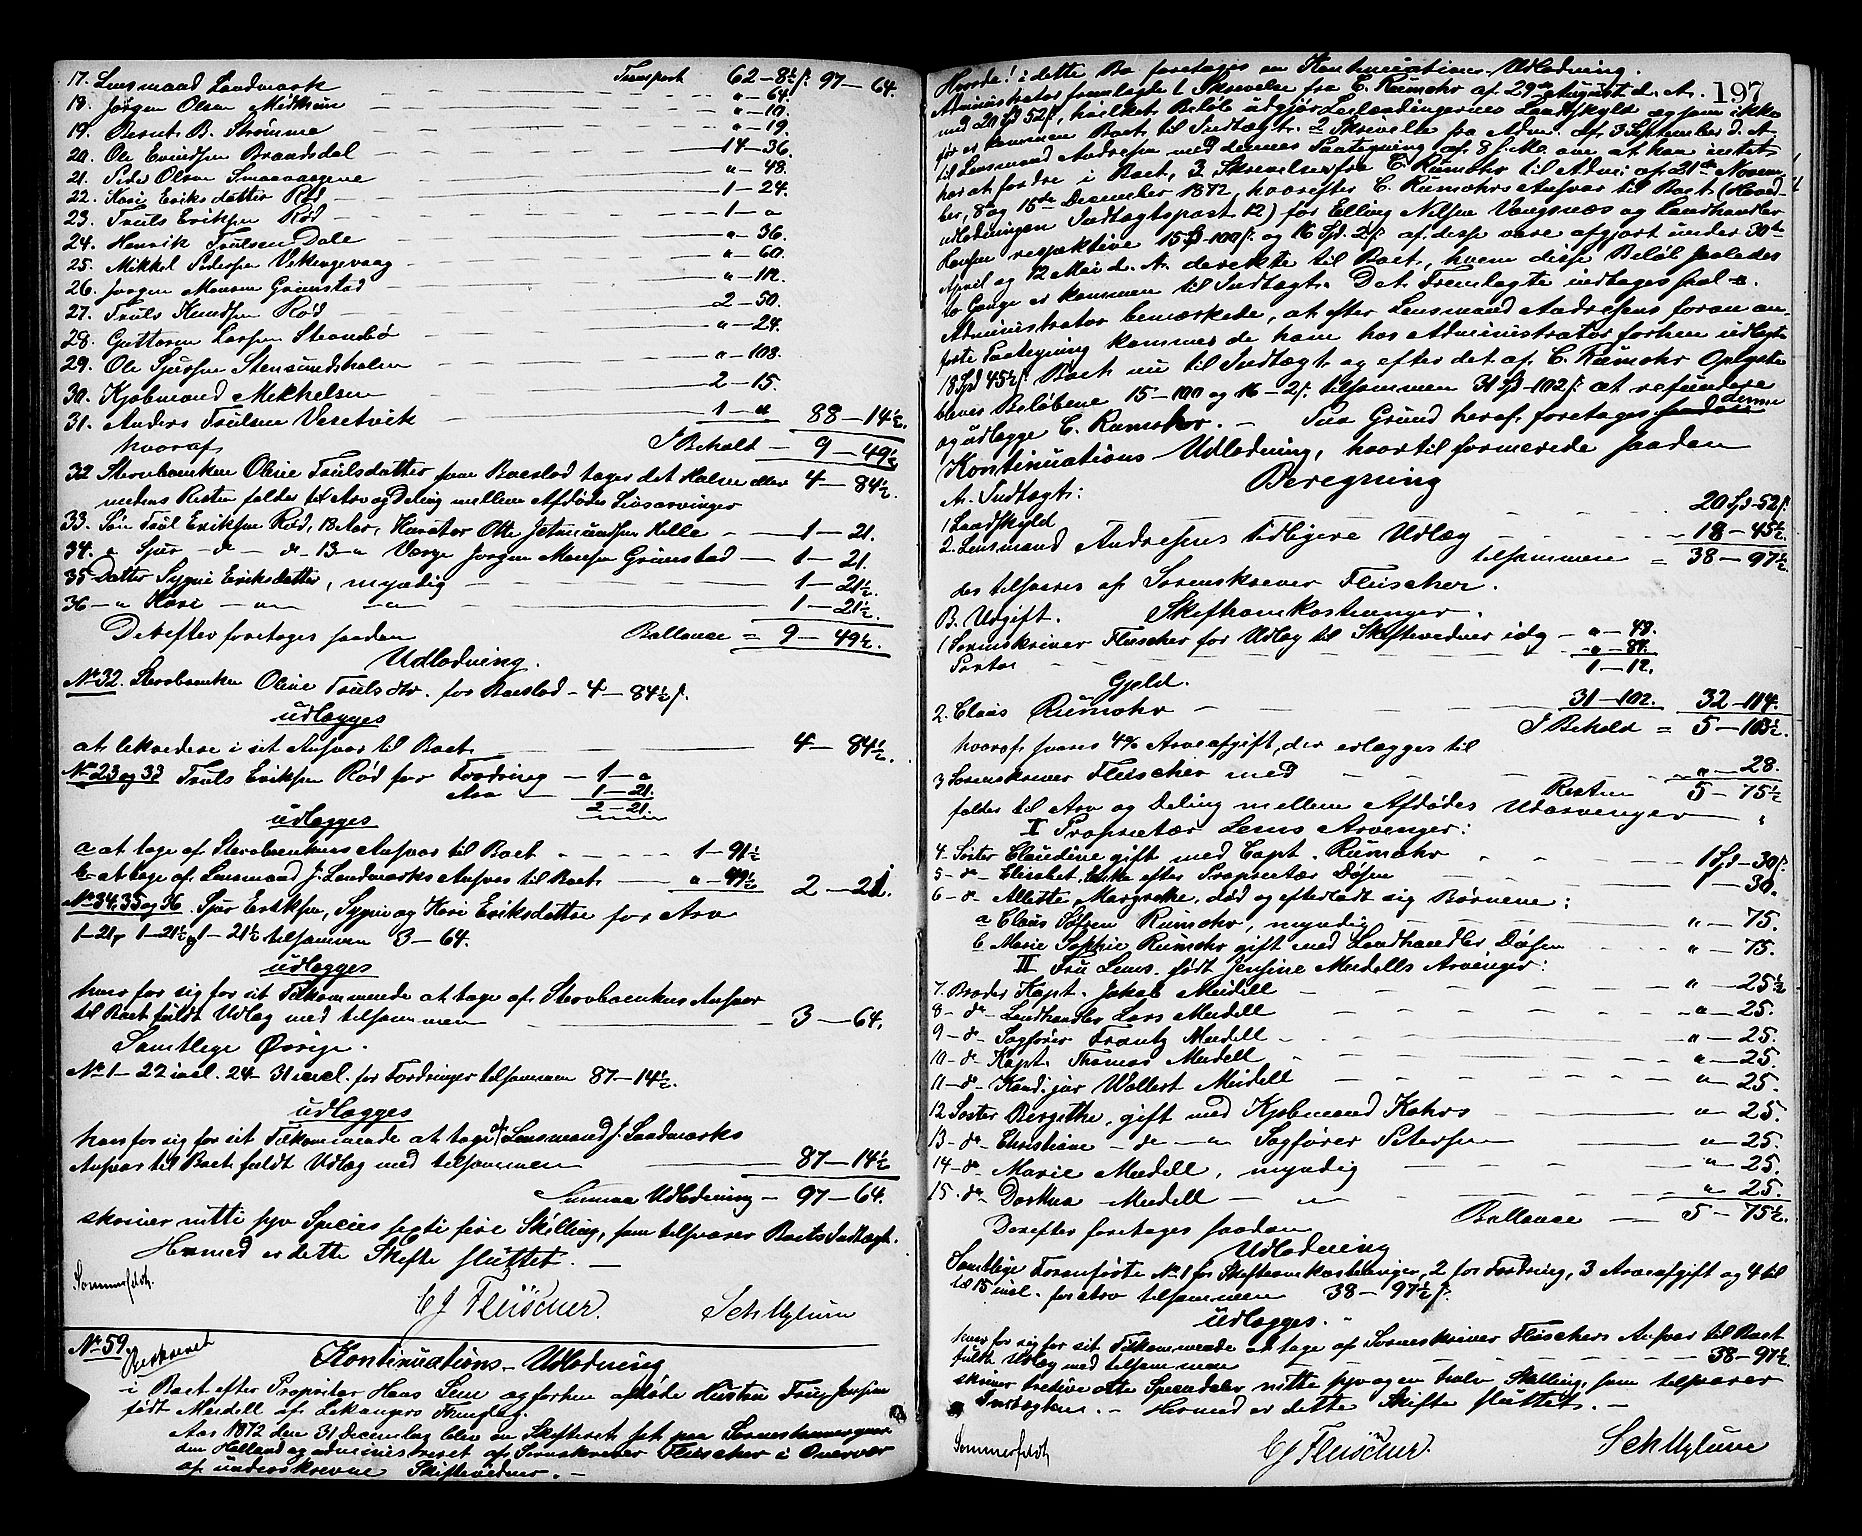 17. Lensmand Landmark Transport 62-8½ß. 97-64.
18. Jørgen Olsen Midttun " - 64.
19. Bernt B. Strømme " - 19.
20. Ole Evindsen Brandsdal 14-36.
21. Peder Olsen Smaavaagene " - 48.
22. Kari Eriksdatter Rød 1-24.
23. Truls Eriksen Rød 1 - "
24. Henrik Trulsen Dale " - 36.
25. Mikkel Pedersen Vekengevaag " - 60.
26. Jørgen Monsen Grimstad " - 112.
27. Truls Knudsen Rød 2-50.
28. Guttorm Larsen Strandbø " - 24.
29. Ole Sjursen Stensundholm " - 108.
30. Kjøbmand Mikkelsen 2-15.
31. Anders Trulsen Vesetvik 1 - " 88-14½.
hvoraf I Behold 9-49½
32 Stervboenken Oline Trulsdatter for Boeslod tager det Halve eller 4-84½.
medens Resten falder til Arv og Deling mellem Afdødes Livsarvinger
33. Søn Trul Eriksen Rød, 18 Aar, Kurator Otte Jetmundsen Helle 1-21.
34. " Sjur - do - do 13 - " Værge Jørgen Monsen Grimstad 1-21.
35 Datter Sygni Eriksdatter, myndig 1-21½
36 - " Kari - " - " 1-21½.
Derefter foretages saadan Ballance = 9-49½.
Udlodning.
No 32. Stervboenken Oline Trulsdtr. for Boeslod - 4-84½ß.
udlægges
at likvidere i sit Ansvar til Boet 4-84½.
No 23 og 33 Truls Eriksen Rød for Fordring - 1 - "
Arv 1-21.
2-21.
udlægges
a at tage af Stervboenkens Ansvar til Boet 1-91½
b at tage af Lensmand J. Landmarks Ansvar til Boet " - 49½ 2-21.
No 34, 35 og 36. Sjur Eriksen, Sygni og Kari Eriksdøttre for Arv
1-21, 1-21½ og 1-21½ tilsammen 3-64.
udlægges
hver for sig for sit Tilkommende at tage af Stervboenkens Ansvar
til Boet fuldt Udlæg med tilsammen 3-64.
Samtlige Øvrige.
No 1-22 incl. 24-31 incl. for Fordringer tilsammen 87-14½.
udlægges
hver for sig for sit Tilkommende at tage af Lensmand J. Landmarks
Ansvar til Boet fuldt Udlæg med tilsammen 87-14½
Summa Udlodning - 97-64.
skriver nitti syv Species sexti fire Skilling, som tilsvarer Boets Indtægt.
Hermed er dette Skifte sluttet.
Sommerfeldt. CJ Fleischer. Sch Mylius
No 59.
Kontinuations-Udlodning
i Boet efter Proprietær Hans Lem og forhen afdøde Hustru Fru Jensine
født Meidell af Lekangers Thinglag.
Aar 1872 den 31 December blev en Skifteret sat paa Sorenskrivergaar-
den Holland og administreret af Sorenskriver Fleischer i Overvær
af underskrevne Skiftevidner. -
197
Hvorda! i dette Bo foretages en Kontinuations-Udlodning.
Administrator fremlagte 1 Skrivelse fra C. Rumohr af 29de August d. A.
med 20 Spd 52ß, hvilket Beløb udgjør Leilændingernes Landskyld og som ikke
før er kommen Boet til Indtægt. 2 Skrivelse fra Adm. af 3 September d. A.
til Lensmand Andresen med dennes Paategning af 8 s. M. om, at han intet
har at fordre i Boet, 3 Skrivelser fra C. Rumohr til Adm. af 21de Novem-
ber, 8 og 15de December 1872, hvorefter C. Rumohrs Ansvar til Boet (Hoved-
udlodningen Indtægtspost 12) for Elling Nilsen Vangsnæs og Landhandler
Hansen respektive 15 Spd 100ß. og 16 Spd. 2ß. af disse vare afgjort under 30te
April og 12 Mai d. A. direkte til Boet, hvem disse Beløb saaledes
to Gange er kommen til Indtægt. Det Fremlagte indtages sub a.
Administrator bemærkede, at efter Lensmand Andresens foran an-
førte Paategning kommer de ham hos Administrator forhen udlagte
18 Spd 45½ß. Boet nu til Indtægt og efter det af C. Rumohr Oplyste
blives Beløbene 15-100 og 16-2ß. tilsammen 31 Spd-102ß. at refundere
og udlægge C. Rumohr. - Paa Grund heraf foretages denne
Kontinuations Udlodning, hvortil formerede saadan
Beregning
A. Indtægt:
1 Landskyld 20 Spd-52ß.
2. Lensmand Andresens tidligere Udlæg 18-45½.
tilsammen = 38-97½
der tilsvares af Sorenskriver Fleischer.
B. Udgift. Skifteomkostninger.
1 Sorenskriver Fleischer for Udlæg til Skiftevidner idag - " - 48.
Porto " - 84.
1-12.
Gjeld.
2. Claus Rumohr 31-102. 32-114.
I Behold = 5-103½.
hvoraf svares 4% Arveafgift, der erlægges til
3 Sorenskriver Fleischer med " - 28.
Resten 5-75½
falder til Arv og Deling mellem Afdødes Udarvinger
I Proprietær Lems Arvinger:
4. Søster Claudine gift med Capt. Rumohr 1 Spd-30ß.
5 - do - Elisabet, Enke efter Proprietær Døsen 1-30.
6 - do - Allette Margrethe, død og efterladt sig Børnene:
a Claus Olsen Rumohr, myndig " - 75.
b Marie Sophie Rumohr gift med Landhandler Døsen " - 75.
II Fru Lems født Jensine Meidells Arvinger:
7. Broder Kapt. Jakob Meidell " - 25½
8 - do - Landhandler Lars Meidell " - 25.
9 - do - Sagfører Frantz Meidell " - 25.
10 - do - Kapt. Thomas Meidell " - 25.
11 - do - Kand. jur Wollert Meidell " - 25.
12 Søster Bergithe, gift med Kjøbmand Kahrs " - 25.
13 - do - Christiane - do - " Sagfører Petersen " - 25.
14 - do - Marie Meidell, myndig " - 25.
15 - do - Dorthea Meidell - " " - 25.
Derefter foretages saadan Ballance 5-75½.
Udlodning
Samtlige Foranførte No 1 for Skifteomkostninger, 2 for Fordring, 3 Arveafgift og 4 til
15 incl. for Arv tilsammen 38-97½ß.
udlægges.
hver for sig for sit Tilkommende at tage af Sorenskriver Fleischers Ansvar til Boet
fuldt Udlæg med tilsammen 38-97½
skriver tredive otte Speciedaler nitte syv og en halv Skilling, som tilsvarer
Indtægten. - Hermed er dette Skifte sluttet. -
Sommerfeldt CJ Fleischer. Sch Mylius